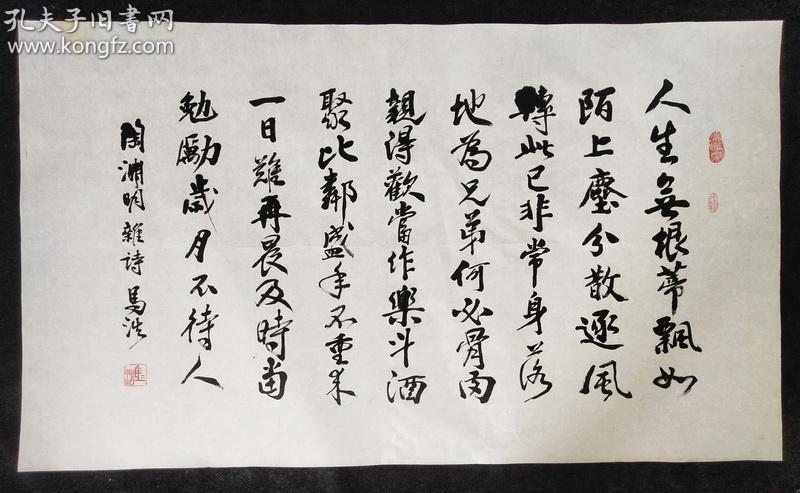 孔夫子旧书网
www.kongfz.com
人生無根蒂飄如
陌上塵分散逐風
轉此已非常身落
地為兄弟何必骨肉
親得歡當作樂斗酒
聚比鄰盛年不重來
一日難再晨及時當
勉勵歲月不待人
陶淵明雜詩 馬浩